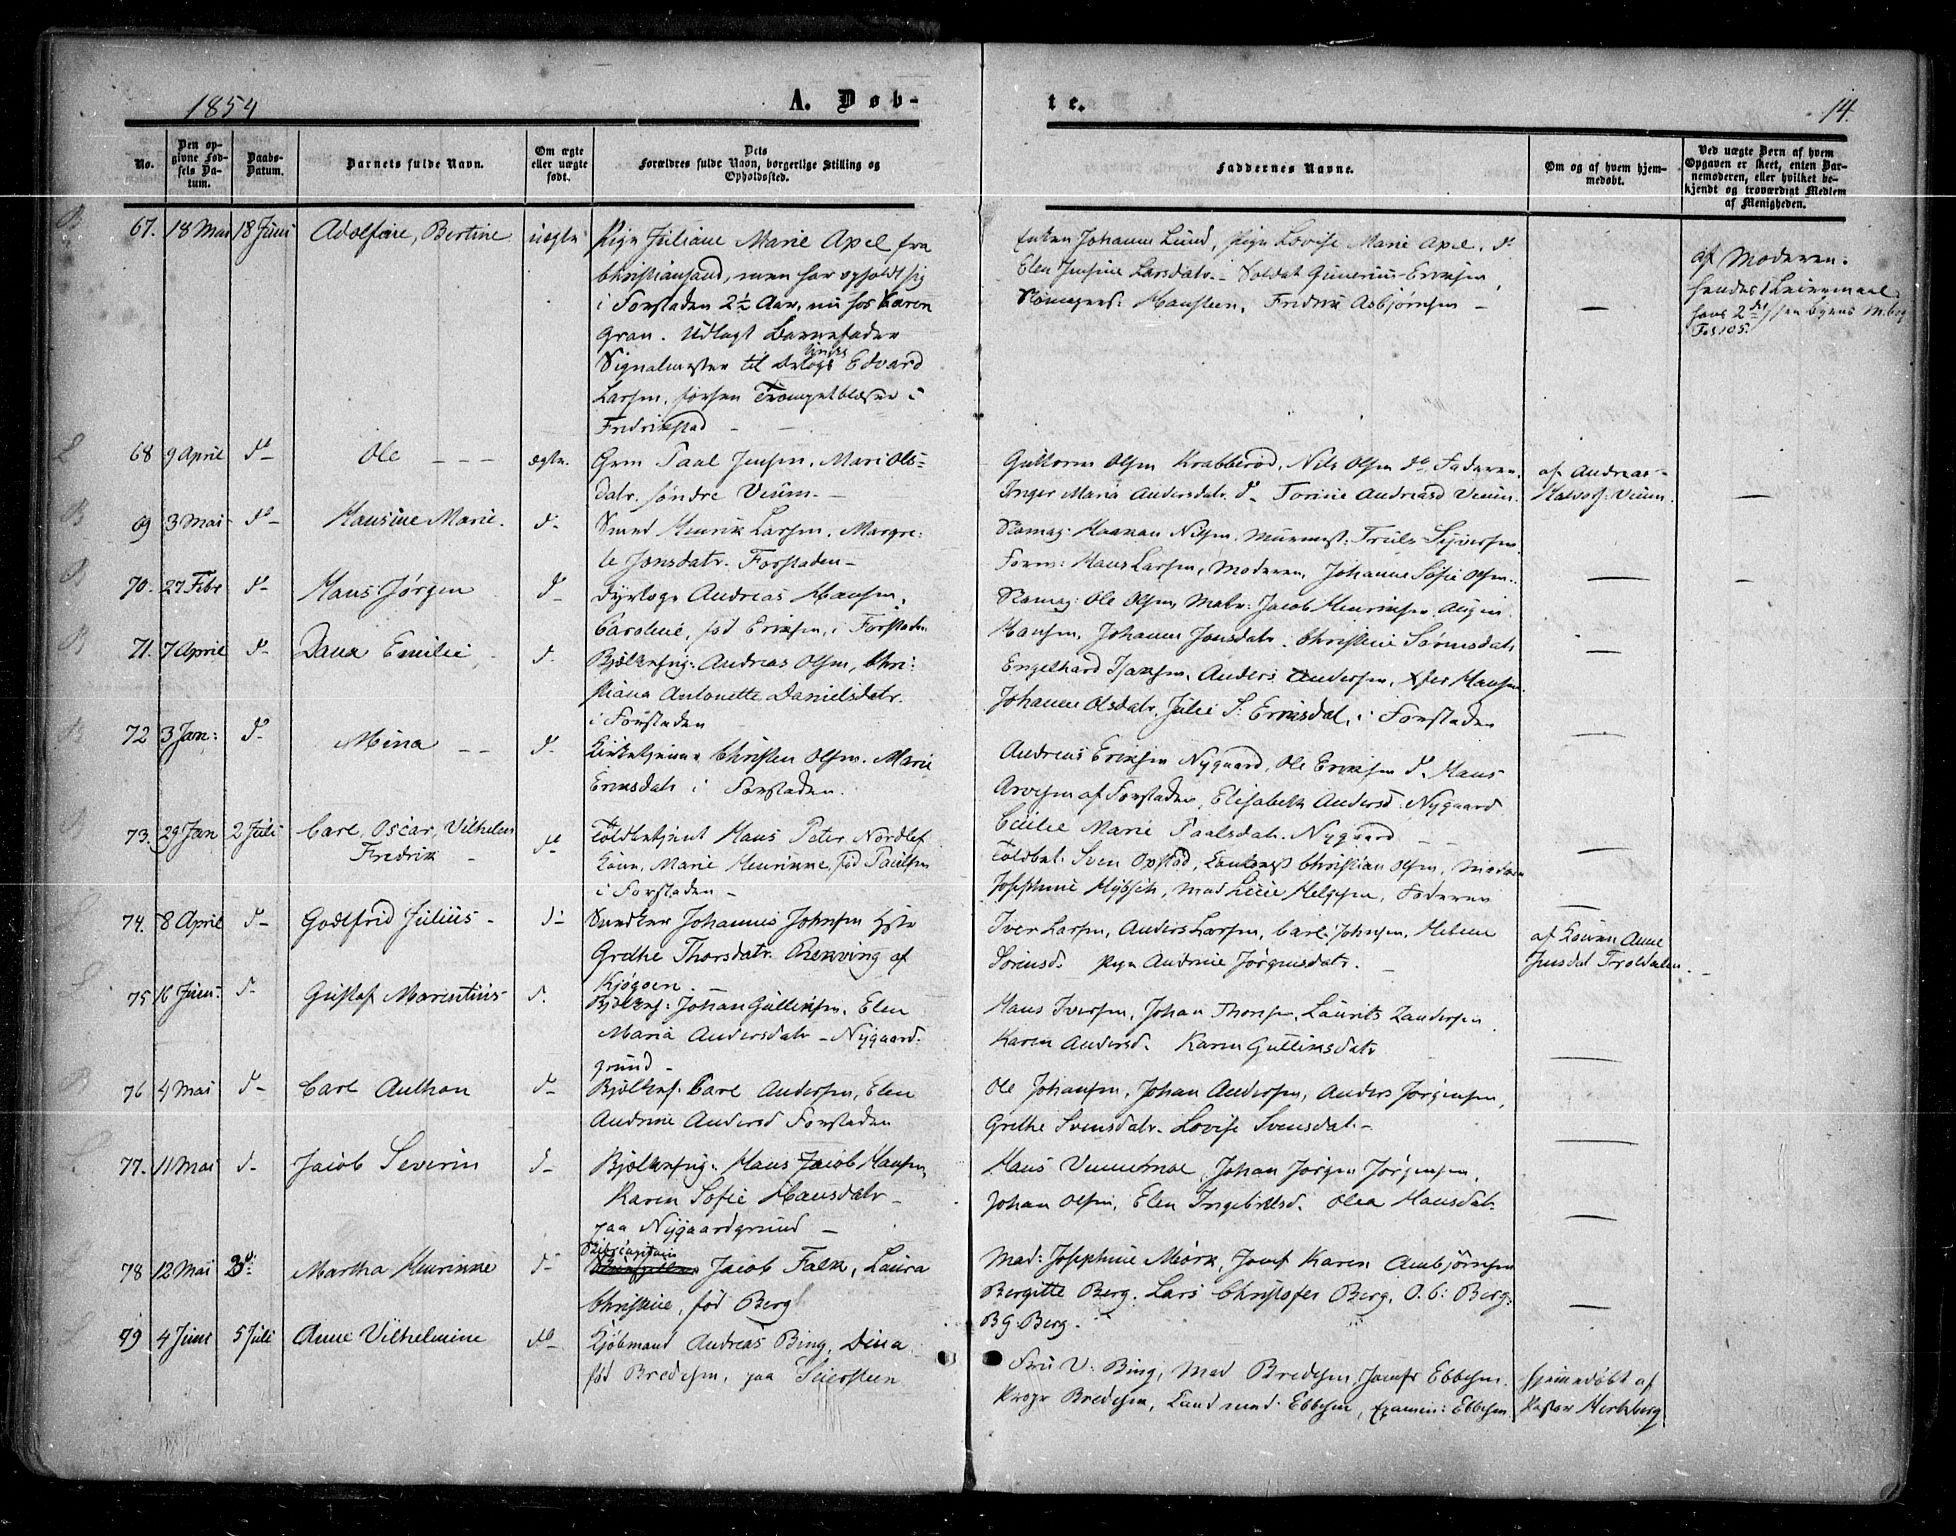 1854
A. Døb-
te.
14.
No.
Den op-
givne Fød-
sels Da-
tum.
Daabs-
Datum.
Barnets fulde Navn.
Om ægte
eller uægte
født.
Dets
Forældres fulde Navn, borgerlige Stilling og
Opholdssted.
Faddernes Navne.
Om og af hvem hjem-
medøbt.
Ved uægte Børn af hvem
Opgaven er skeet, enten Bar-
nemoderen, eller hvilket be-
kjendt og troværdigt Medlem
af Menigheden.
B 67. 18 Mai 18 Juni Adolfine, Bertine uægte Pige Juliane Marie Apel fra
Christiansand, men har opholdt sig
i Forstaden 2½ Aar, nu hos Karen
Gran. Udlagt Barnefader
Signalmester til Edvard
Larsen, forhen Trompetblæser i
Fredrikstad -
Enken Johanne Lund, Pige Lovise Marie Apel, do
Elen Jensine Larsdatr. - Soldat Gunerius Eriksen,
Hansteen, Fredrik Asbjørnsen -
af Moderen.
hendes 1 Leiermaal
hans 2det
Fol 105.
L 68 9 April do- Ole - - - ægte. Grm Paal Jensen, Mari Ols-
datr. søndre Veum. -
Guttorm Olsen Krabberød, Nils Olsen do Faderen.
Inger Maria Andersdatr. do- Torine Andreasd Veum.
af Andreas
Halvors. Veum.
B 69 3 Mai do- Hansine Marie. do- Smed Henrik Larsen, Margre-
te Jonsdatr. Forstaden -
Skomag: Haagen Nilsen, Murmest: Truls Syversen.
Form: Hans Larsen, Moderen, Johanne Sofie Olsen.
B 70. 27 Febr do- Hans Jørgen do- Andreas Hansen,
Caroline, fød Eriksen, i Forstaden
Skomag: Ole Olsen, Matr: Jacob Henriksen
Hansen, Johanne Jonsdatr. Christine Sørensdatr
B 71. 7 April do- Dana Emilie, do. Bjælkehug: Andreas Olsen, Chri:
stiana Antonette Danielsdatr.
i Forstaden
Engelhard Isaksen, Anders Andersen, Hansen
Johanne Olsdatr, Julie S. Eriksdat, i Forstaden
B 72 3 Jan: do- Mina - - do- Kirketjener Christen Olsen. Marie
Eriksdatr i Forstaden.
Andreas Eriksen Nygaard, Ole Eriksen do- Hans
Arvesen af Forstaden, Elisabeth Andersd. Nygaard
Cecilie Marie Paalsdatr. Nygaard - -
B 73. 29 Jan 2 Juli Carl, Oscar, Vilhelm
Fredrik - do- Toldbetjent Hans Peter Nordlef
Marie Henrikke, fød Paulsen
i Forstaden -
Toldbet: Sven Opstad, Christian Olsen, Madam
Josephine Hybsch, Mad Helgesen, Faderen
74. 8 April do- Godtfrid Julius - do- Snedker Johannes Johnsen
Grethe Thorsdatr. af
Kjøgøen. -
Iver Larsen, Anders Larsen, Carl Johnsen. Helene
Sørensd. Pige Andrine Jørgensdatr. -
af Konen Anne
Jensdat Troldalen.
L 75 16 Juni do- Gustaf Maresitius do. Bjælkehug: Johan Gulliksen, Elen
Maria Andersdatr - Nygaard-
grund -
Hans Iversen, Johan Thoresen, Laurits Zandersen
Karen Andersd. Karen Gulliksdatr
B 76 4 Mai do- Carl Anthon do- Bjælkehug: Carl Andersen, Elen
Andrine Andersd Forstaden
Ole Johansen, Johan Andersen, Anders Jørgensen,
Grethe Svensdatr. Lovise Svensdat. -
L 77. 11 Mai do- Jacob Severin do- Bjælkehug: Hans Jacob Hansen,
Karen Sofie Hansdatr -
paa Nygaardgrund -
Hans Johan Jørgen Jørgensen,
Johan Olsen, Elen Ingebretsd. Olea Hansdat.
78 12 Mai do: Martha Henrikke do- Skibscapitain
Jacob Falk, Laura
Christine, fød Berg
Mad: Josephine Mørk, Jomf Karen Ambjørnsen
Bergitte Berg, Lars Christofer Berg, O. C: Berg:
B G. Berg.
79 4 Juni 5 Juli Anne Vilhelmine do- Kjøbmand Andreas Bing, Dina
fød Bredesen, paa Seiersteen
Fru V: Bing, Mad Bredesen, Jomfr Ebbesen.
Bredesen, Cand med: Ebbesen, Examin: Ebbesen
hjemmedøbt af
Pastor Hertzberg